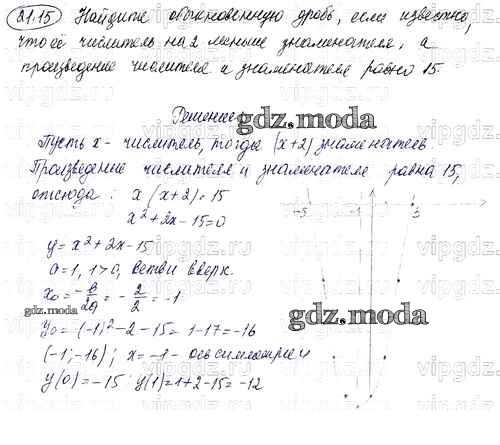 21.15 Найдите обыкновенную дробь, если известно,
что её числитель на 2 меньше знаменателя, а
произведение числителя и знаменателя равно 15.
Решение:
gdz.moda
Пусть x - числитель, тогда (x+2) знаменатель
Произведение числителя и знаменателя равна 15,
отсюда: x(x+2)=15
x²+2x-15=0
y=x²+2x-15
a=1, 1>0, ветви вверх
x₀=-в/2a=-2/2=-1
y₀=(-1)²-2-15=1-17=-16
(-1;-16); x=-1- ось симметрии
y(0)=-15 y(1)=1+2-15=-12
-5 -1 3
gdz.moda
gdz.moda
vipgdz.ru